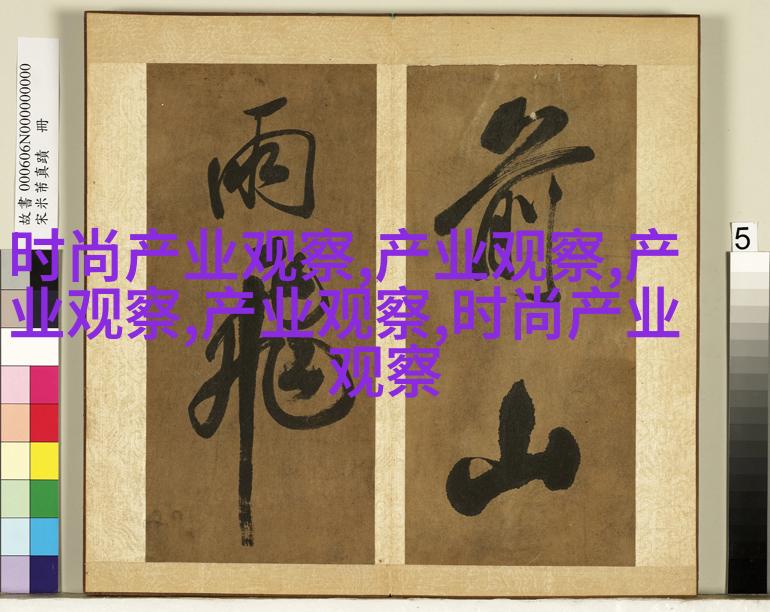 故書 000606N000000000
宋米芾真蹟 冊
前山
雨飛
5
时尚产业观察,产业观察,产
业观察,产业观察,时尚产业
观察